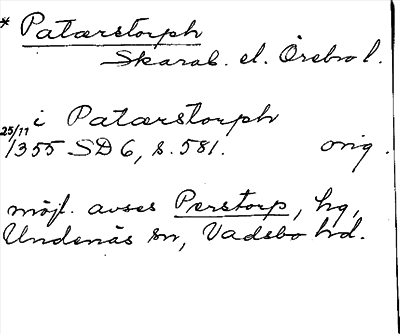 * Patærstorph
Skarab. el. Örebro l.
i Patærstorph
25/11 1355 SD 6, s. 581. orig.
möjl. avses Perstorp, hg,
Undenäs sn, Vadsbo hd.